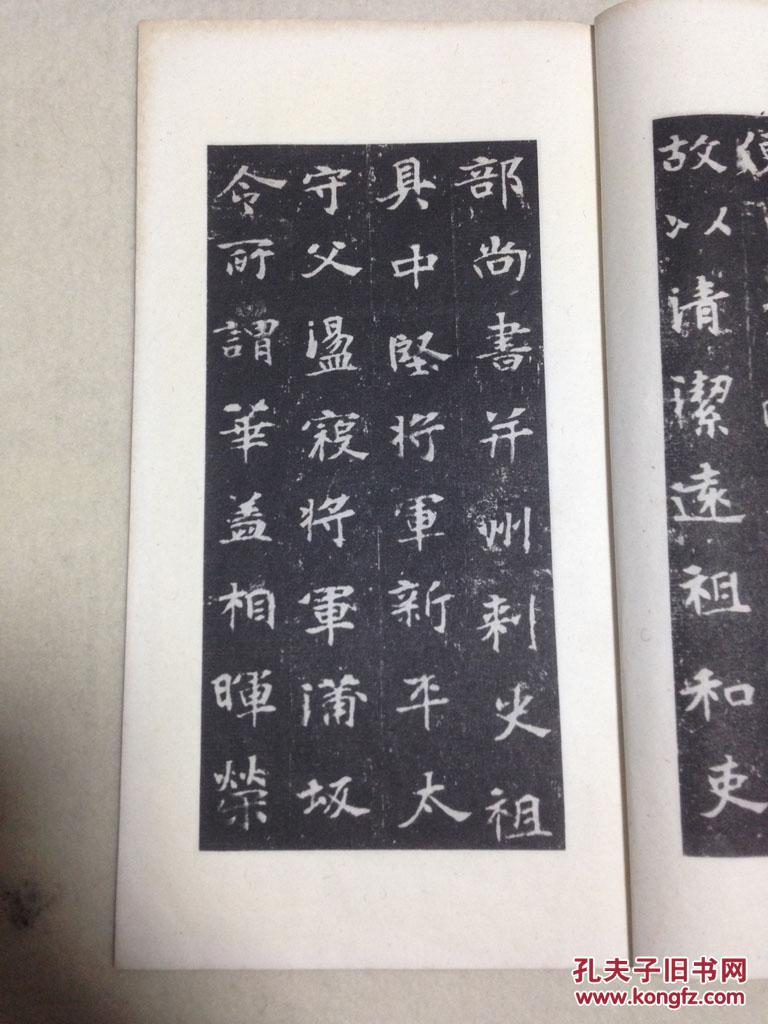 故以清潔遠祖和吏
部尚書并州刺史祖
具中堅將軍新平太
守父溫寇將軍蒲坂
令所謂華蓋相暉榮
孔夫子旧书网
www.kongfz.com